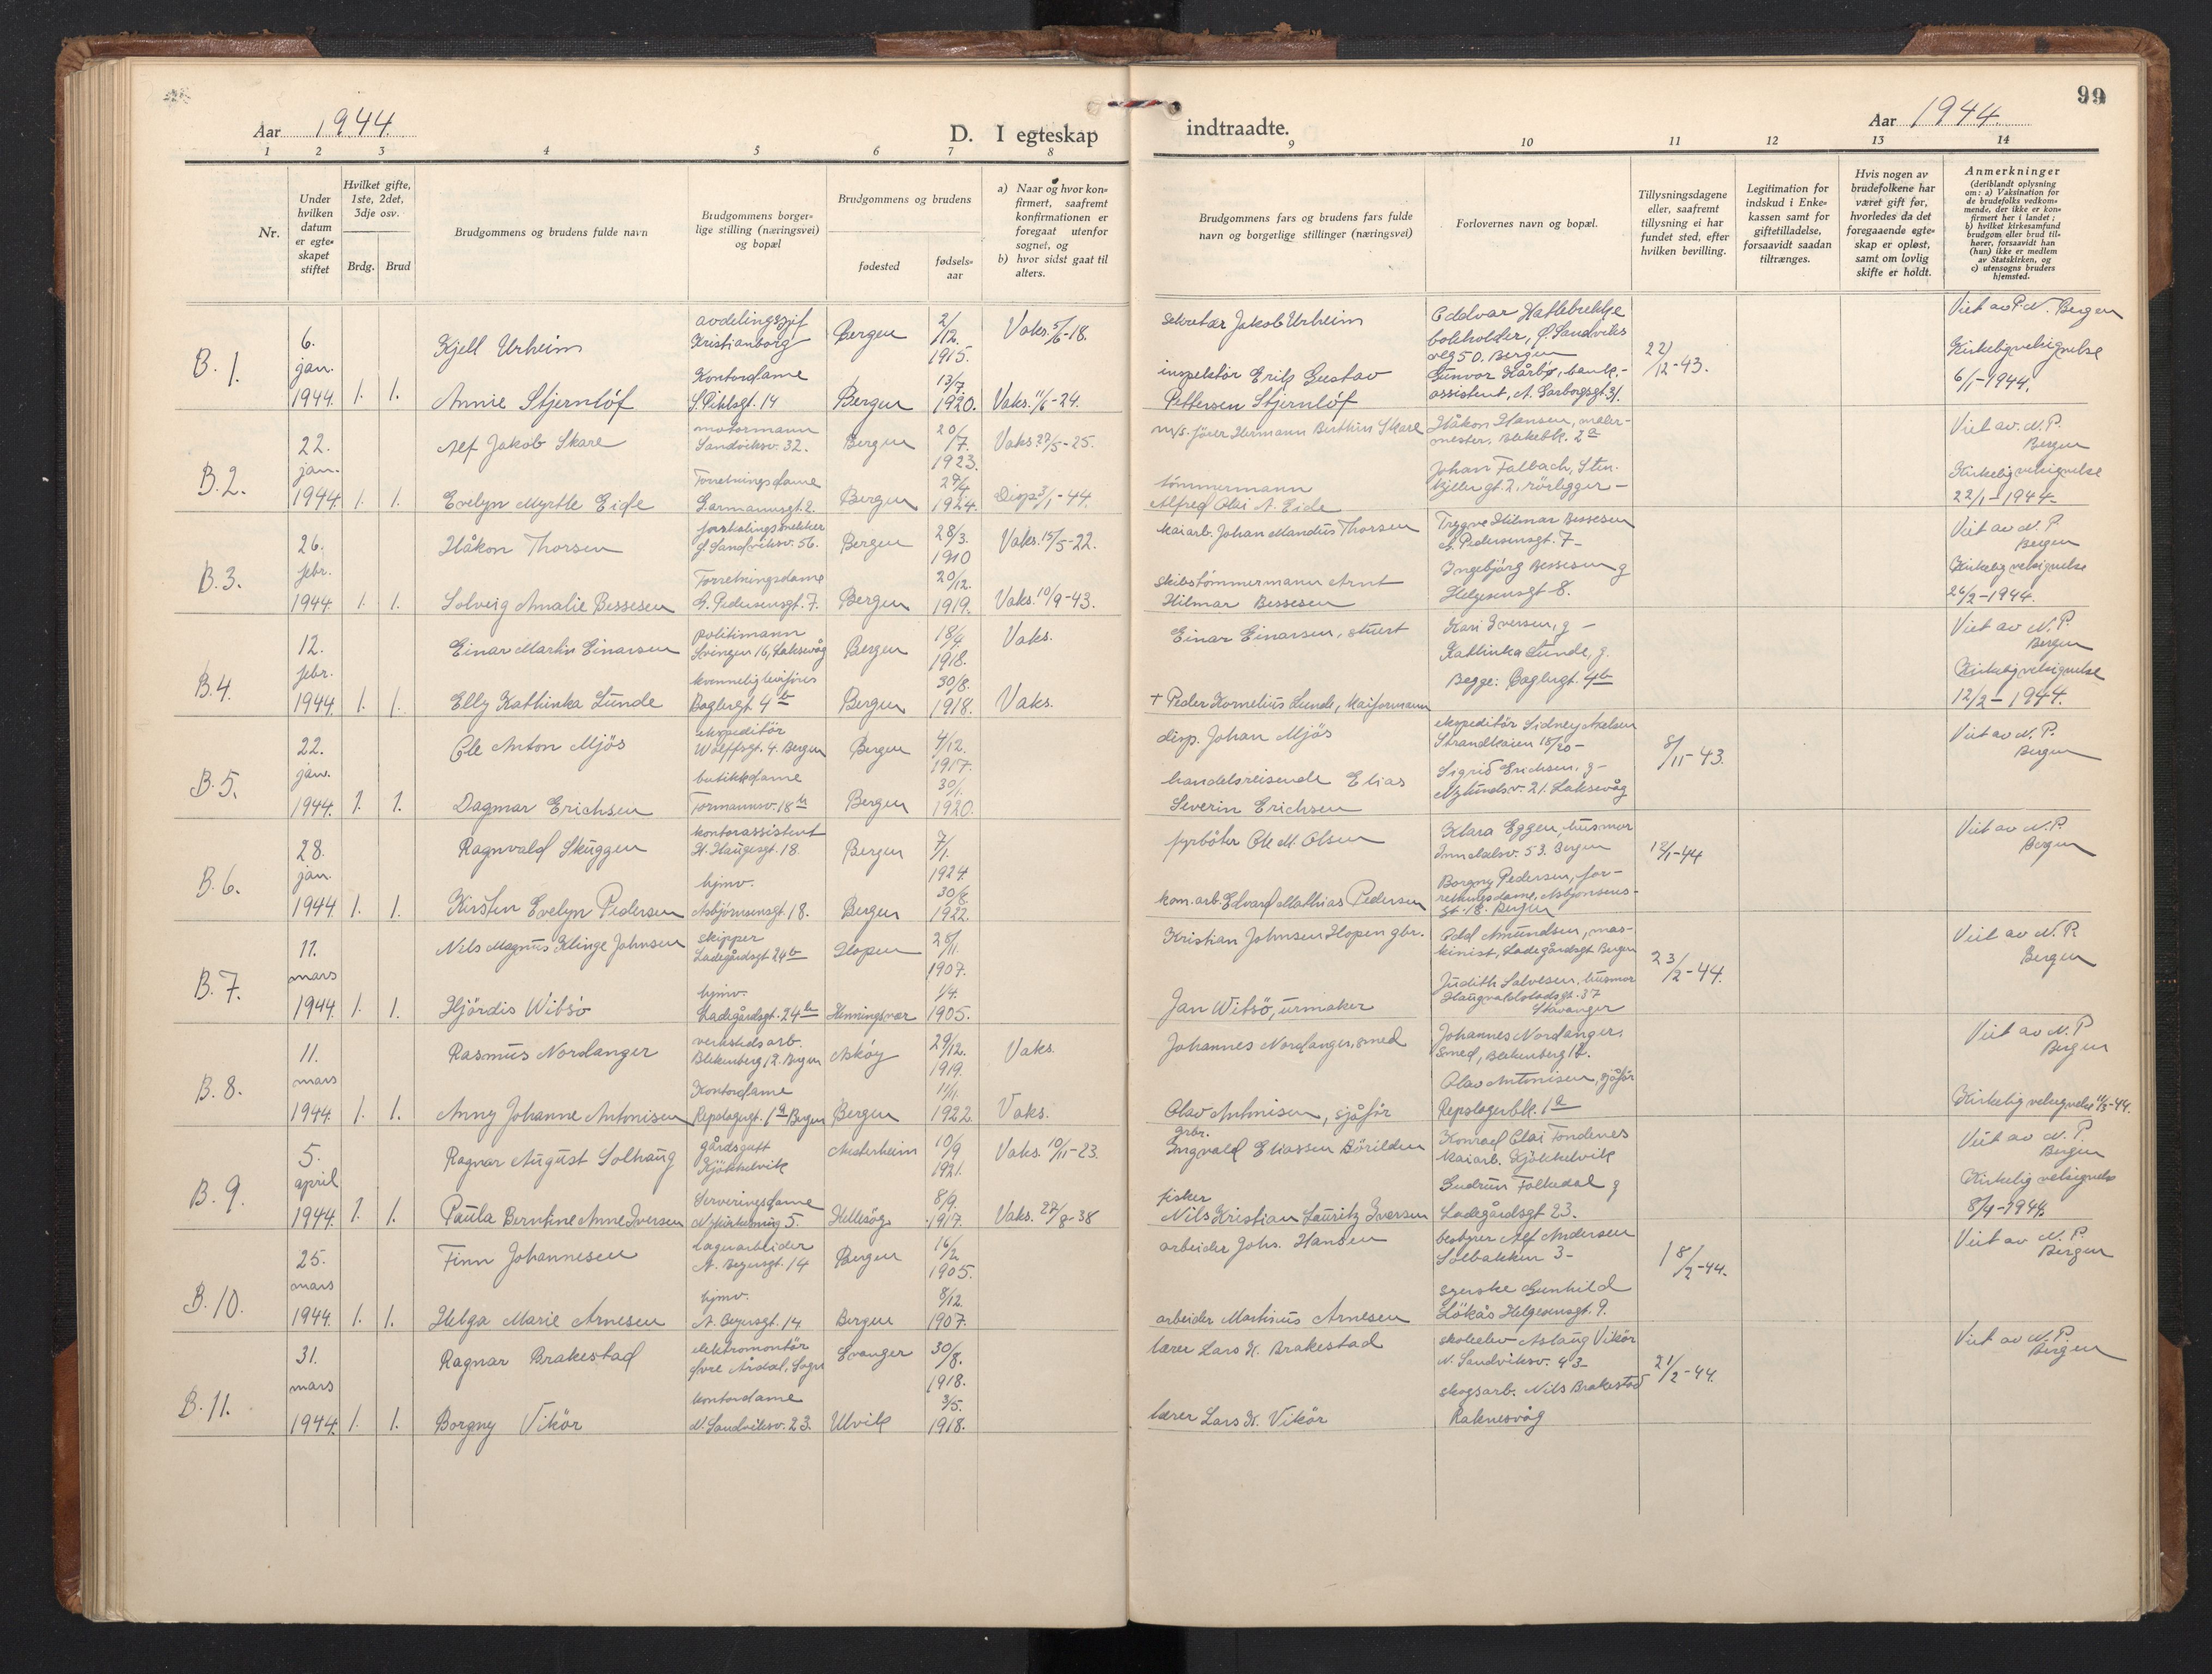 99
Aar 1944.
D. I egteskap
indtraadte.
Aar 1944.
1 2 3 4 5 6 7 8 9 10 11 12 13 14
Nr.
Under hvilken datum er egteskapet stiftet
Hvilket gifte, 1ste, 2det, 3dje osv.
Brdg. Brud
Brudgommens og brudens fulde navn
Brudgommens borgerlige stilling (næringsvei) og bopæl
Brudgommens og brudens
fødested
fødselsaar
a) Naar og hvor konfirmert, saafremt konfirmationen er foregaat utenfor sognet, og
b) hvor sidst gaat til alters.
Brudgommens fars og brudens fars fulde navn og borgerlige stillinger (næringsvei)
Forlovernes navn og bopæl.
Tillysningsdagene eller, saafremt tillysning ei har fundet sted, efter hvilken bevilling.
Legitimation for indskud i Enkekassen samt for giftetilladelse, forsaavidt saadan tiltrænges.
Hvis nogen av brudefolkene har været gift før, hvorledes da det foregaaende egteskap er opløst, samt om lovlig skifte er holdt.
Anmerkninger
(deriblandt oplysning om: a) Vaksination for de brudefolks vedkommende, der ikke er konfirmert her i landet; b) hvilket kirkesamfund brudgom eller brud tilhører, forsaavidt han (hun) ikke er medlem av Statskirken, og c) utensogns bruders hjemsted.
B. 1. 6. jan. 1944. 1. 1.
Kjell Urheim avdelingssjef Kristianborg Bergen 2/12. 1915. Vaks. 5/6-18.
sekretær Jakob Urheim
Oddvar Hatlebrekke bokholder, Ø. Sandviks veg 50. Bergen
22/12-43.
Viet av N.P. Bergen
Annie Stjernlöf Kontordame S. Pihlsgt. 14 Bergen 13/7. 1920. Vaks. 11/6-24.
inspektör Erik Gustav Pettersen Stjernlöf
Gunvor Kårbø, bank.-assistent, A. Garborgsgt. 31.
Kirkelig velsignelse 6/1-1944.
B. 2. 22. jan. 1944. 1. 1.
Alf Jakob Skare motormann Sandviksv. 32. Bergen 20/7. 1923. Vaks. 27/5-25.
m/s. fører Hermann Berthin Skare
Håkon Hansen, malermester, Blekebk. 2a
Viet av. N.P. Bergen
Evelyn Myrtle Eide Forretningsdame Garmannsgt. 2. Bergen 29/4 1924. Disp. 3/1-44.
tömmermann Alfred Olai A. Eide
Johan Falbach, Stenkjellergt. 2, rörlegger -
Kirkelig velsignelse 22/1-1944.
B. 3. 26. febr. 1944. 1. 1.
Håkon Thorsen Ø. Sandviksv. 56. Bergen 28/3. 1910 Vaks. 15/5-22.
kaiarb. Johan Mandius Thorsen
Trygve Hilmar Bessesen A. Pedersensgt. 7-
Viet av N.P. Bergen
Solveig Amalie Bessesen Forretningsdame A. Pedersensgt. 7. Bergen 20/12. 1919. Vaks. 10/9-43.
skibstömmermann Arnt Hilmar Bessesen
Ingebjörg Bessesen g Helgesensgt. 8.
Kirkelig velsignelse 26/2-1944.
B. 4. 12. febr. 1944. 1. 1.
Einar Martin Einarsen politimann Svingen 16, Laksevåg Bergen 18/4 1918. Vaks.
Einar Einarsen, stuert
Kari Iversen, g - Kathinka Lunde, g. Begge: Baglergt. 4b
Viet av N.P. Bergen
Elly Kathinka Lunde Baglergt. 4b Bergen 30/8. 1918. Vaks.
+ Peder Kornelius Lunde, Kaiformann
Kirkelig velsignelse 12/2-1944.
B. 5. 22. jan. 1944. 1. 1.
Ole Anton Mjös ekspeditör Wolffsgt. 4. Bergen Bergen 4/12. 1917.
disp. Johan Mjös
ekspeditör Sidney Axelsen Strandkaien 18/20-
8/11-43.
Viet av N.P. Bergen
Dagmar Erichsen butikkdame Formannsv. 18b Bergen 30/1. 1920.
handelsreisende Elias Severin Erichsen
Sigrid Erichsen, g- Nylundsv. 21. Laksevåg
B. 6. 28. jan. 1944. 1. 1.
Ragnvald Skuggen kontorassistent H. Haugesgt. 18. Bergen 7/1. 1924.
fyrböter Ole M. Olsen
Klara Eggen, husmor 53. Bergen
12/1-44
Viet av N.P. Bergen
Kirsten Evelyn Pedersen hjmv. Asbjörnsensgt. 18. Bergen 30/8. 1922.
kom. arb. Edvard Mathias Pedersen
Borgny Pedersen, forretningsdame, Asbjörnsensgt. 18. Bergen
B. 7. 11. mars 1944. 1. 1.
Nils Magnus Klinge Johnsen skipper Ladegårdsgt 24b Hopen 28/11. 1907.
Kristian Johnsen Hopen gbr.
Odd Amundsen, maskinist, Ladegårdsgt Bergen
23/2-44.
Viet av N.P. Bergen
Hjördis Wibsö hjmv. Ladegårdsgt. 24b Henningsvær 1/4. 1905.
Jan Wibsö, urmaker
Judith Salvesen, husmor Haugvaldstadsgt. 37 Stavanger
B. 8. 11. mars 1944. 1. 1.
Rasmus Nordanger verkstedsarb. Blekenberg 12. Bergen Askøy 29/12. 1919. Vaks.
Johannes Nordanger, smed
Johannes Nordanger, smed, Blekenberg 12.
Viet av N.P. Bergen
Anny Johanne Antonisen Kontordame Repslagergt. 1a Bergen Bergen 11/11. 1922. Vaks.
Olav Antonisen, sjåför
Olav Antonisen, sjåför Repslagerbk. 1a
Kirkelig velsignelse 11/3-44.
B. 9. 5. april 1944. 1. 1.
Ragnar August Solhaug gårdsgutt Kjökkelvik Austerheim 10/9 1921. Vaks. 10/11-23.
grbr. Ingvald Eliassen Börilden
Konrad Olai Tondenes kaiarb. Kjökkelvik
Viet av N.P. Bergen
Paula Berntine Anne Iversen Serveringsdame 5. Hellesøy 8/9. 1917. Vaks. 27/8-38
fisker Nils Kristian Lauritz Iversen
Gudrun Folkedal g Ladegårdsgt 23.
Kirkelig velsignelse 8/4-1944.
B. 10. 25. mars 1944. 1. 1.
Finn Johannesen lagerarbeider A. Beyersgt. 14 Bergen 16/2 1905.
arbeider Johs. Hansen
bestyrer Alf Andersen Solbakken 3-
18/2-44.
Viet av N.P. Bergen
Helga Marie Arnesen hjmv. A. Beyersgt. 14 Bergen 8/12. 1907.
arbeider Martinius Arnesen
syerske Gunhild Lökås Helgesensgt. 9.
B. 11. 31. mars 1944. 1. 1.
Ragnar Brakestad elektromontör Øvre Årdal, Sogn Evanger 30/8. 1918.
lærer Lars K. Brakestad
skoleelev Aslaug Vikör N. Sandviksv. 43-
21/2-44.
Viet av N.P. Bergen
Borgny Vikör kontordame N. Sandviksv. 23. Ulvik 3/5. 1918.
lærer Lars K. Vikör
skogsarb. Nils Brakestad Raknesvåg